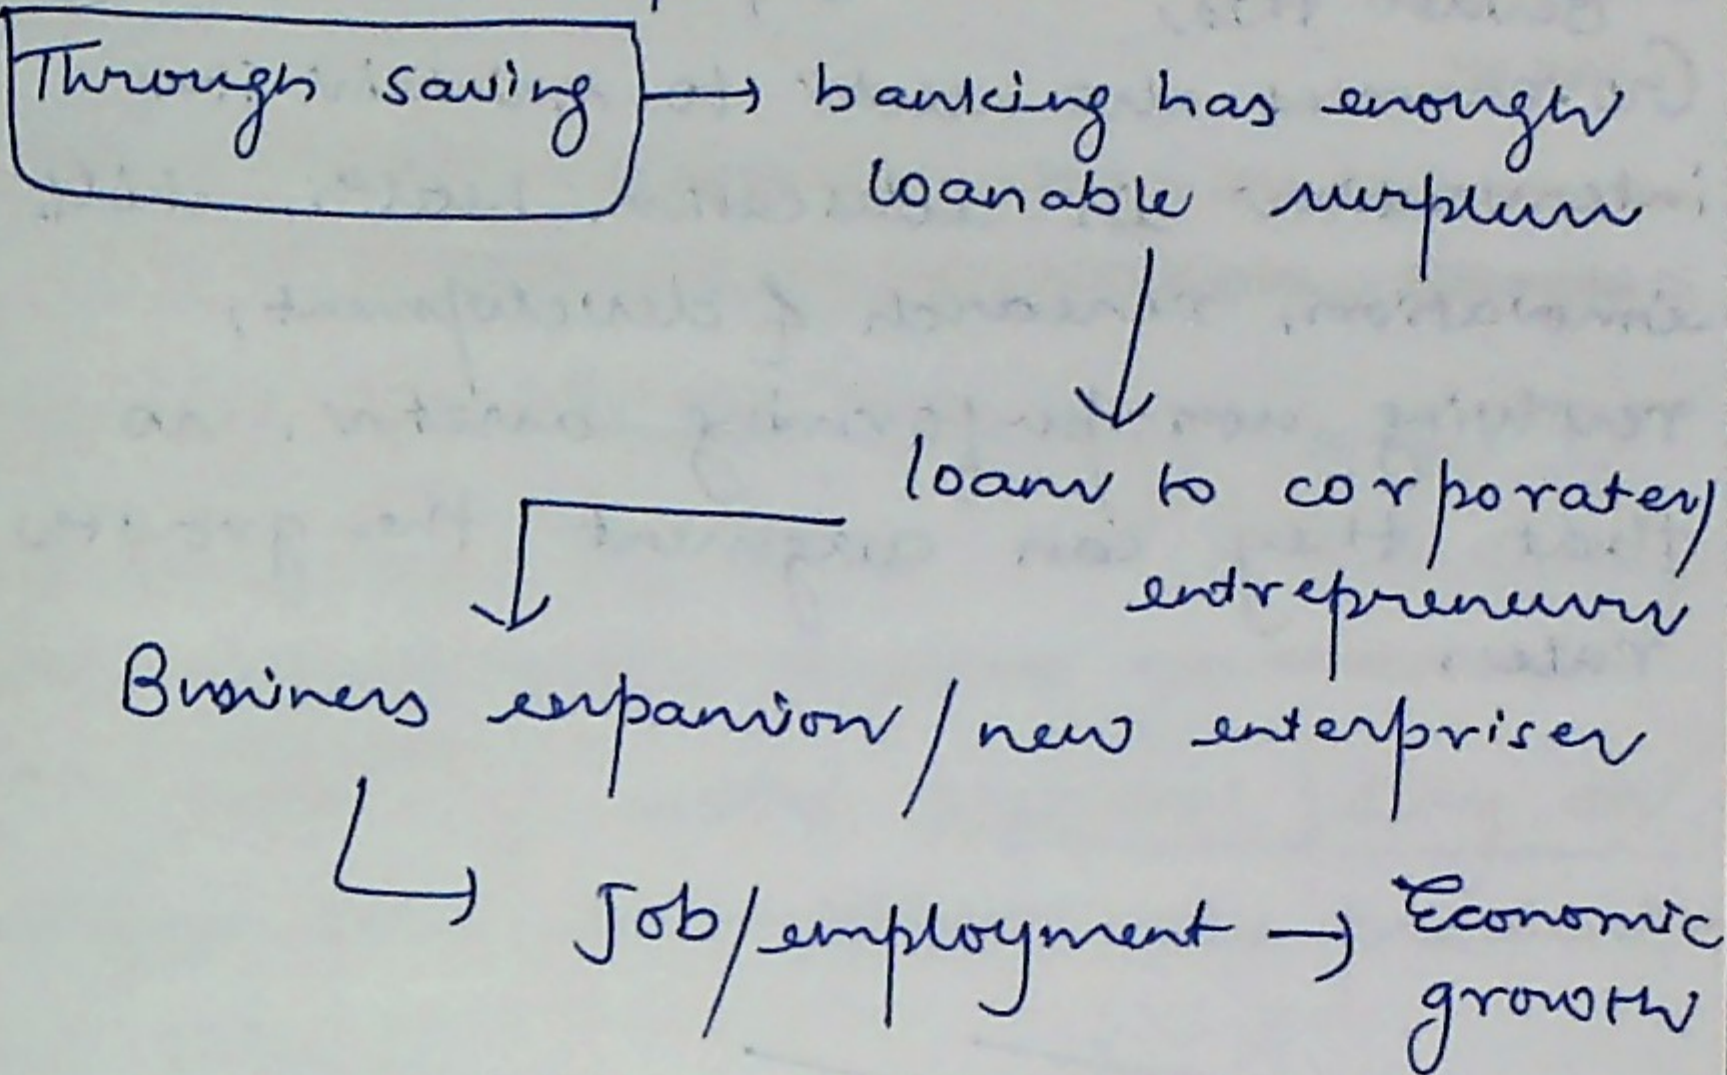 Through saving → banking has enough
loanable surplus
loans to corporates/
entrepreneurs
Business expansion / new enterprises
Job/employment → Economic
growth